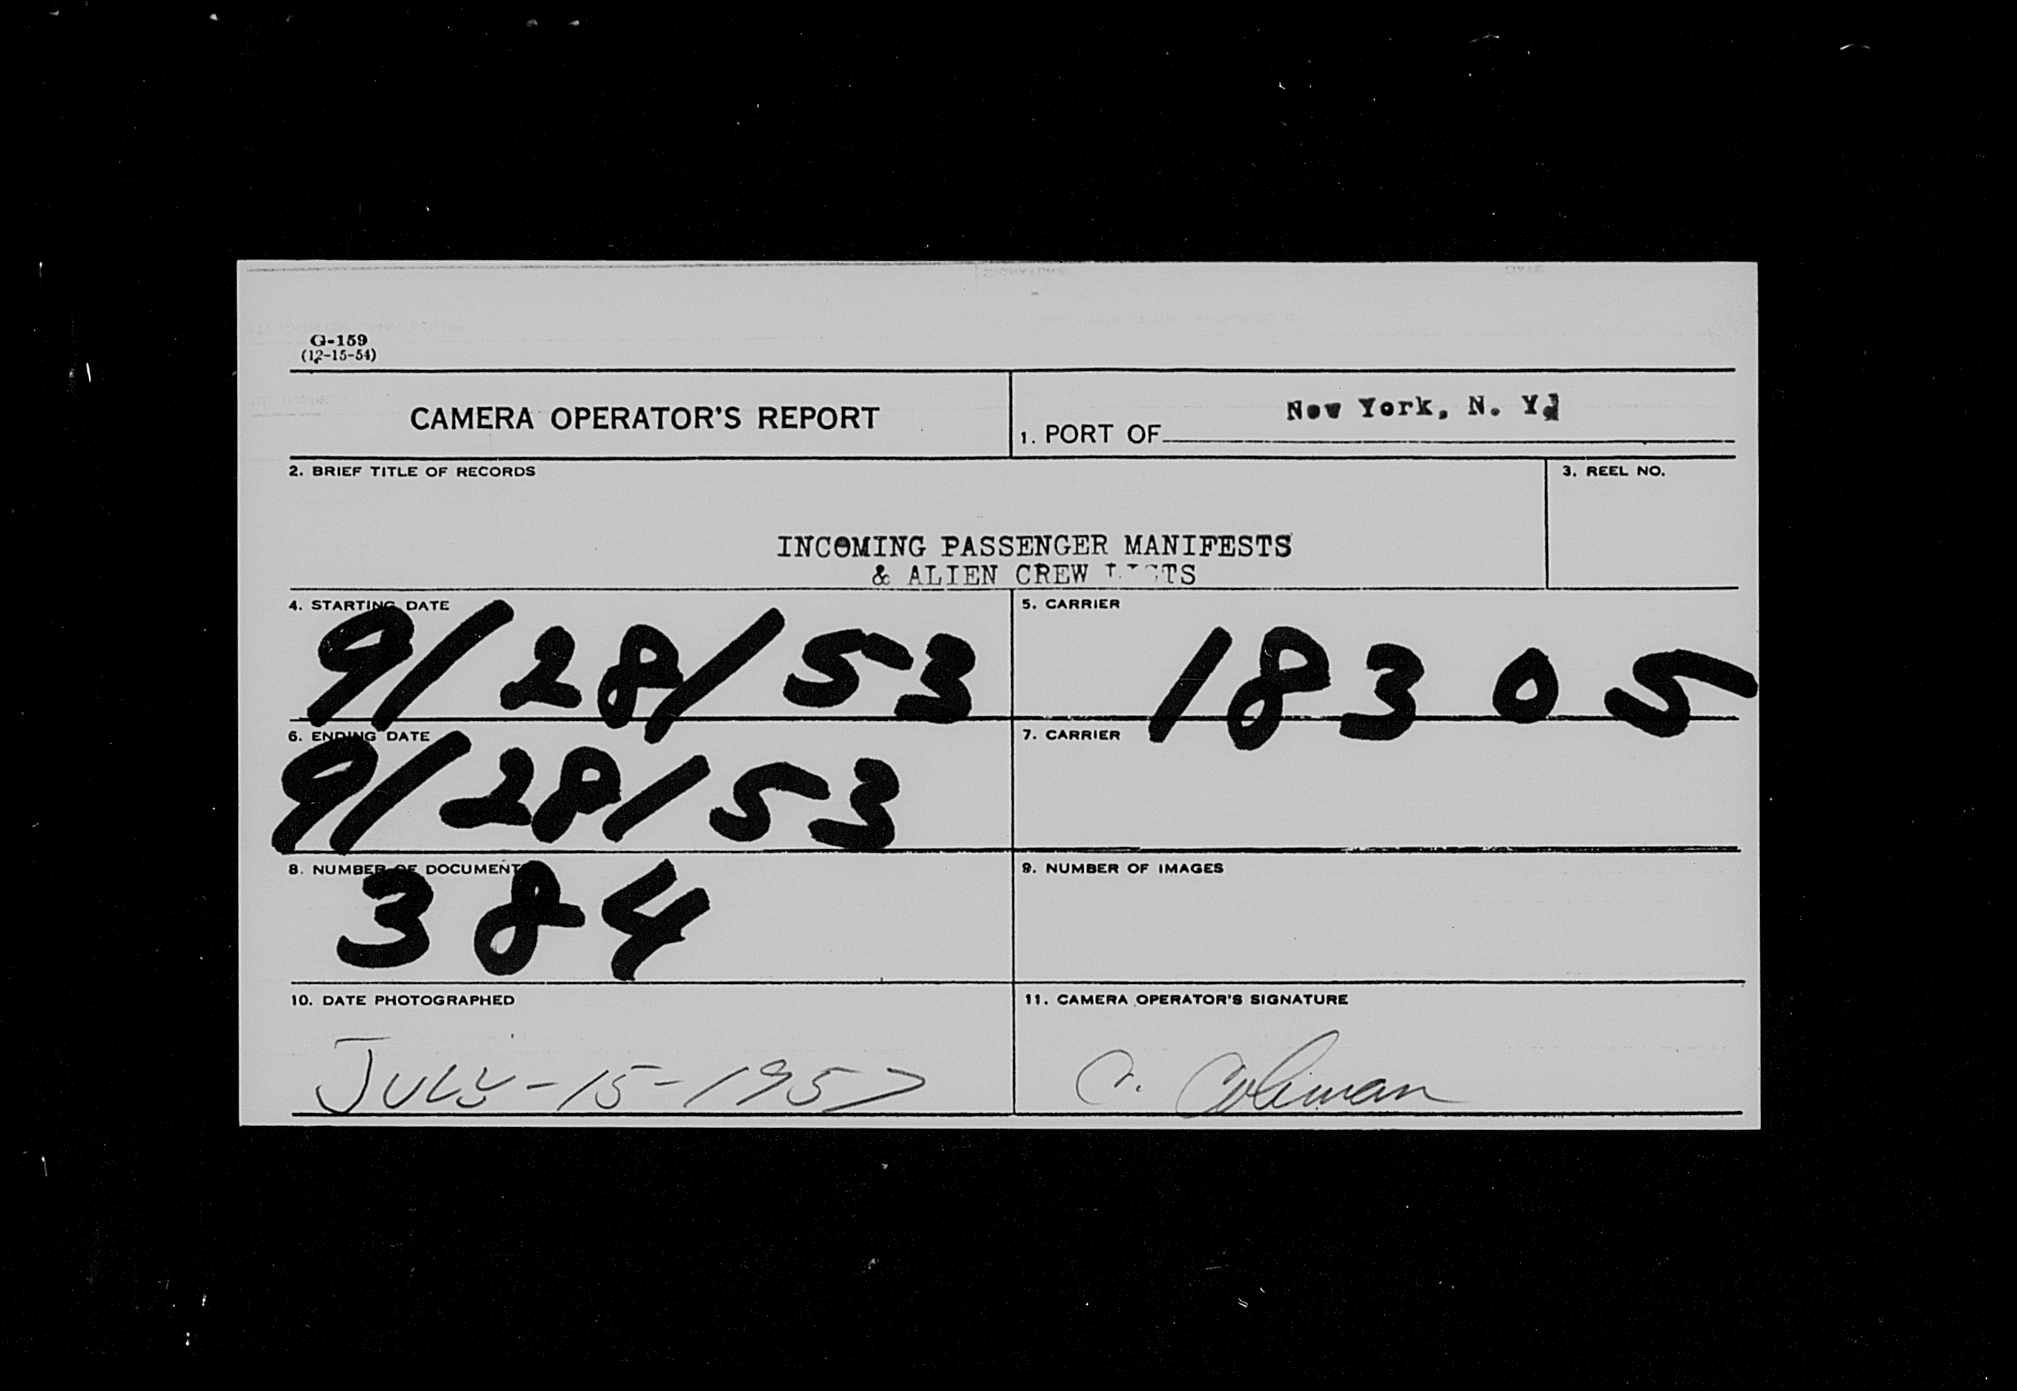 G-159
(12-15-54)
CAMERA OPERATOR'S REPORT
1. PORT OF New York, N. Y.
2. BRIEF TITLE OF RECORDS
3. REEL NO.
INCOMING PASSENGER MANIFESTS
& ALIEN CREW LISTS
4. STARTING DATE
9/28/53
5. CARRIER
18305
6. ENDING DATE
9/28/53
7. CARRIER
8. NUMBER OF DOCUMENTS
384
9. NUMBER OF IMAGES
10. DATE PHOTOGRAPHED
JULY-15-1957
11. CAMERA OPERATOR'S SIGNATURE
C. Coleman